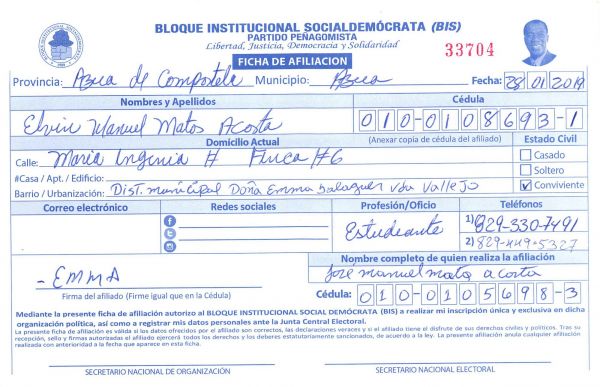 BLOQUE INSTITUCIONAL SOCIALDEMÓCRATA (BIS)
PARTIDO PEÑAGOMISTA
Libertad, Justicia, Democracia y Solidaridad
FICHA DE AFILIACION
33704
Provincia: Azua de Compostela Municipio: Azua Fecha: 28/01/2019
Nombres y Apellidos Cédula
Elvin Manuel Matos Acosta 010-0108693-1
Domicilio Actual (Anexar copia de cédula del afiliado) Estado Civil
Calle: Maria Ingenia # Finca #6 Casado
#Casa / Apt. / Edificio: Soltero
Barrio / Urbanización: Dist. municipal Doña Emma balaguer vda Vallejo Conviviente
Correo electrónico Redes sociales Profesión/Oficio Teléfonos
Estudiante 1) 829-330-7491
2) 829-449-5327
Nombre completo de quien realiza la afiliación
- EMMA José manuel mato acosta
Firma del afiliado (Firme igual que en la Cédula) Cédula: 010-0105698-3
Mediante la presente ficha de afiliación autorizo al BLOQUE INSTITUCIONAL SOCIAL DEMÓCRATA (BIS) a realizar mi inscripción única y exclusiva en dicha
organización política, así como a registrar mis datos personales ante la Junta Central Electoral.
La presente ficha de afiliación es válida a los datos ofrecidos por el afiliado son correctos, las declaraciones veraces y si el afiliado tiene el disfrute de sus derechos civiles y políticos. Tras su
recepción, sello y firmas autorizadas el afiliado ejercerá todos los derechos y los deberes estatutariamente sancionados, de acuerdo a la ley. La presente afiliación anula cualquier afiliación
realizada con anterioridad a la fecha que aparece en esta ficha.
SECRETARIO NACIONAL DE ORGANIZACIÓN SECRETARIO NACIONAL ELECTORAL